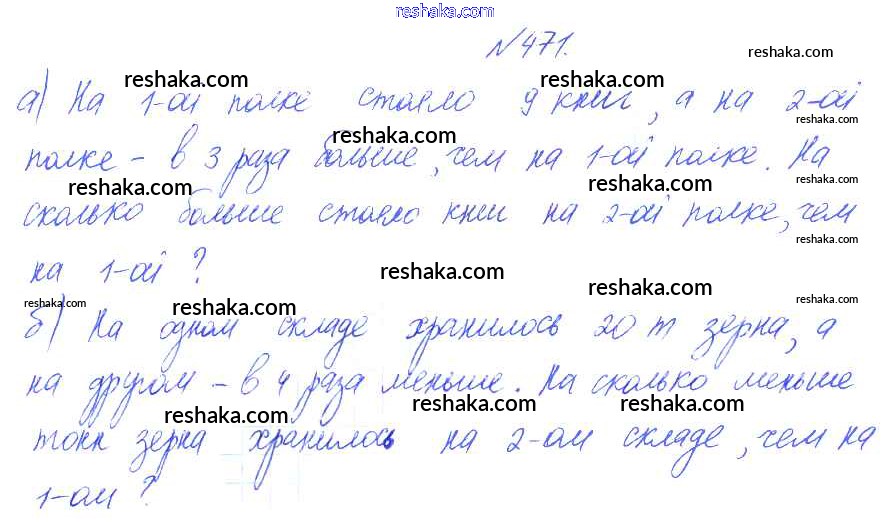 reshaka.com
№471.
reshaka.com
reshaka.com reshaka.com
а) На 1-ой полке стояло 9 книг, а на 2-ой
reshaka.com
reshaka.com
полке – в 3 раза больше, чем на 1-ой полке. На
reshaka.com reshaka.com reshaka.com
сколько больше стояло книг на 2-ой полке, чем
reshaka.com
на 1-ой?
reshaka.com
reshaka.com
reshaka.com reshaka.com reshaka.com
б) На одном складе хранилось 20 т зерна, а
на другом – в 4 раза меньше. На сколько меньше
reshaka.com reshaka.com reshaka.com
тонн зерна хранилось на 2-ом складе, чем на
1-ом?